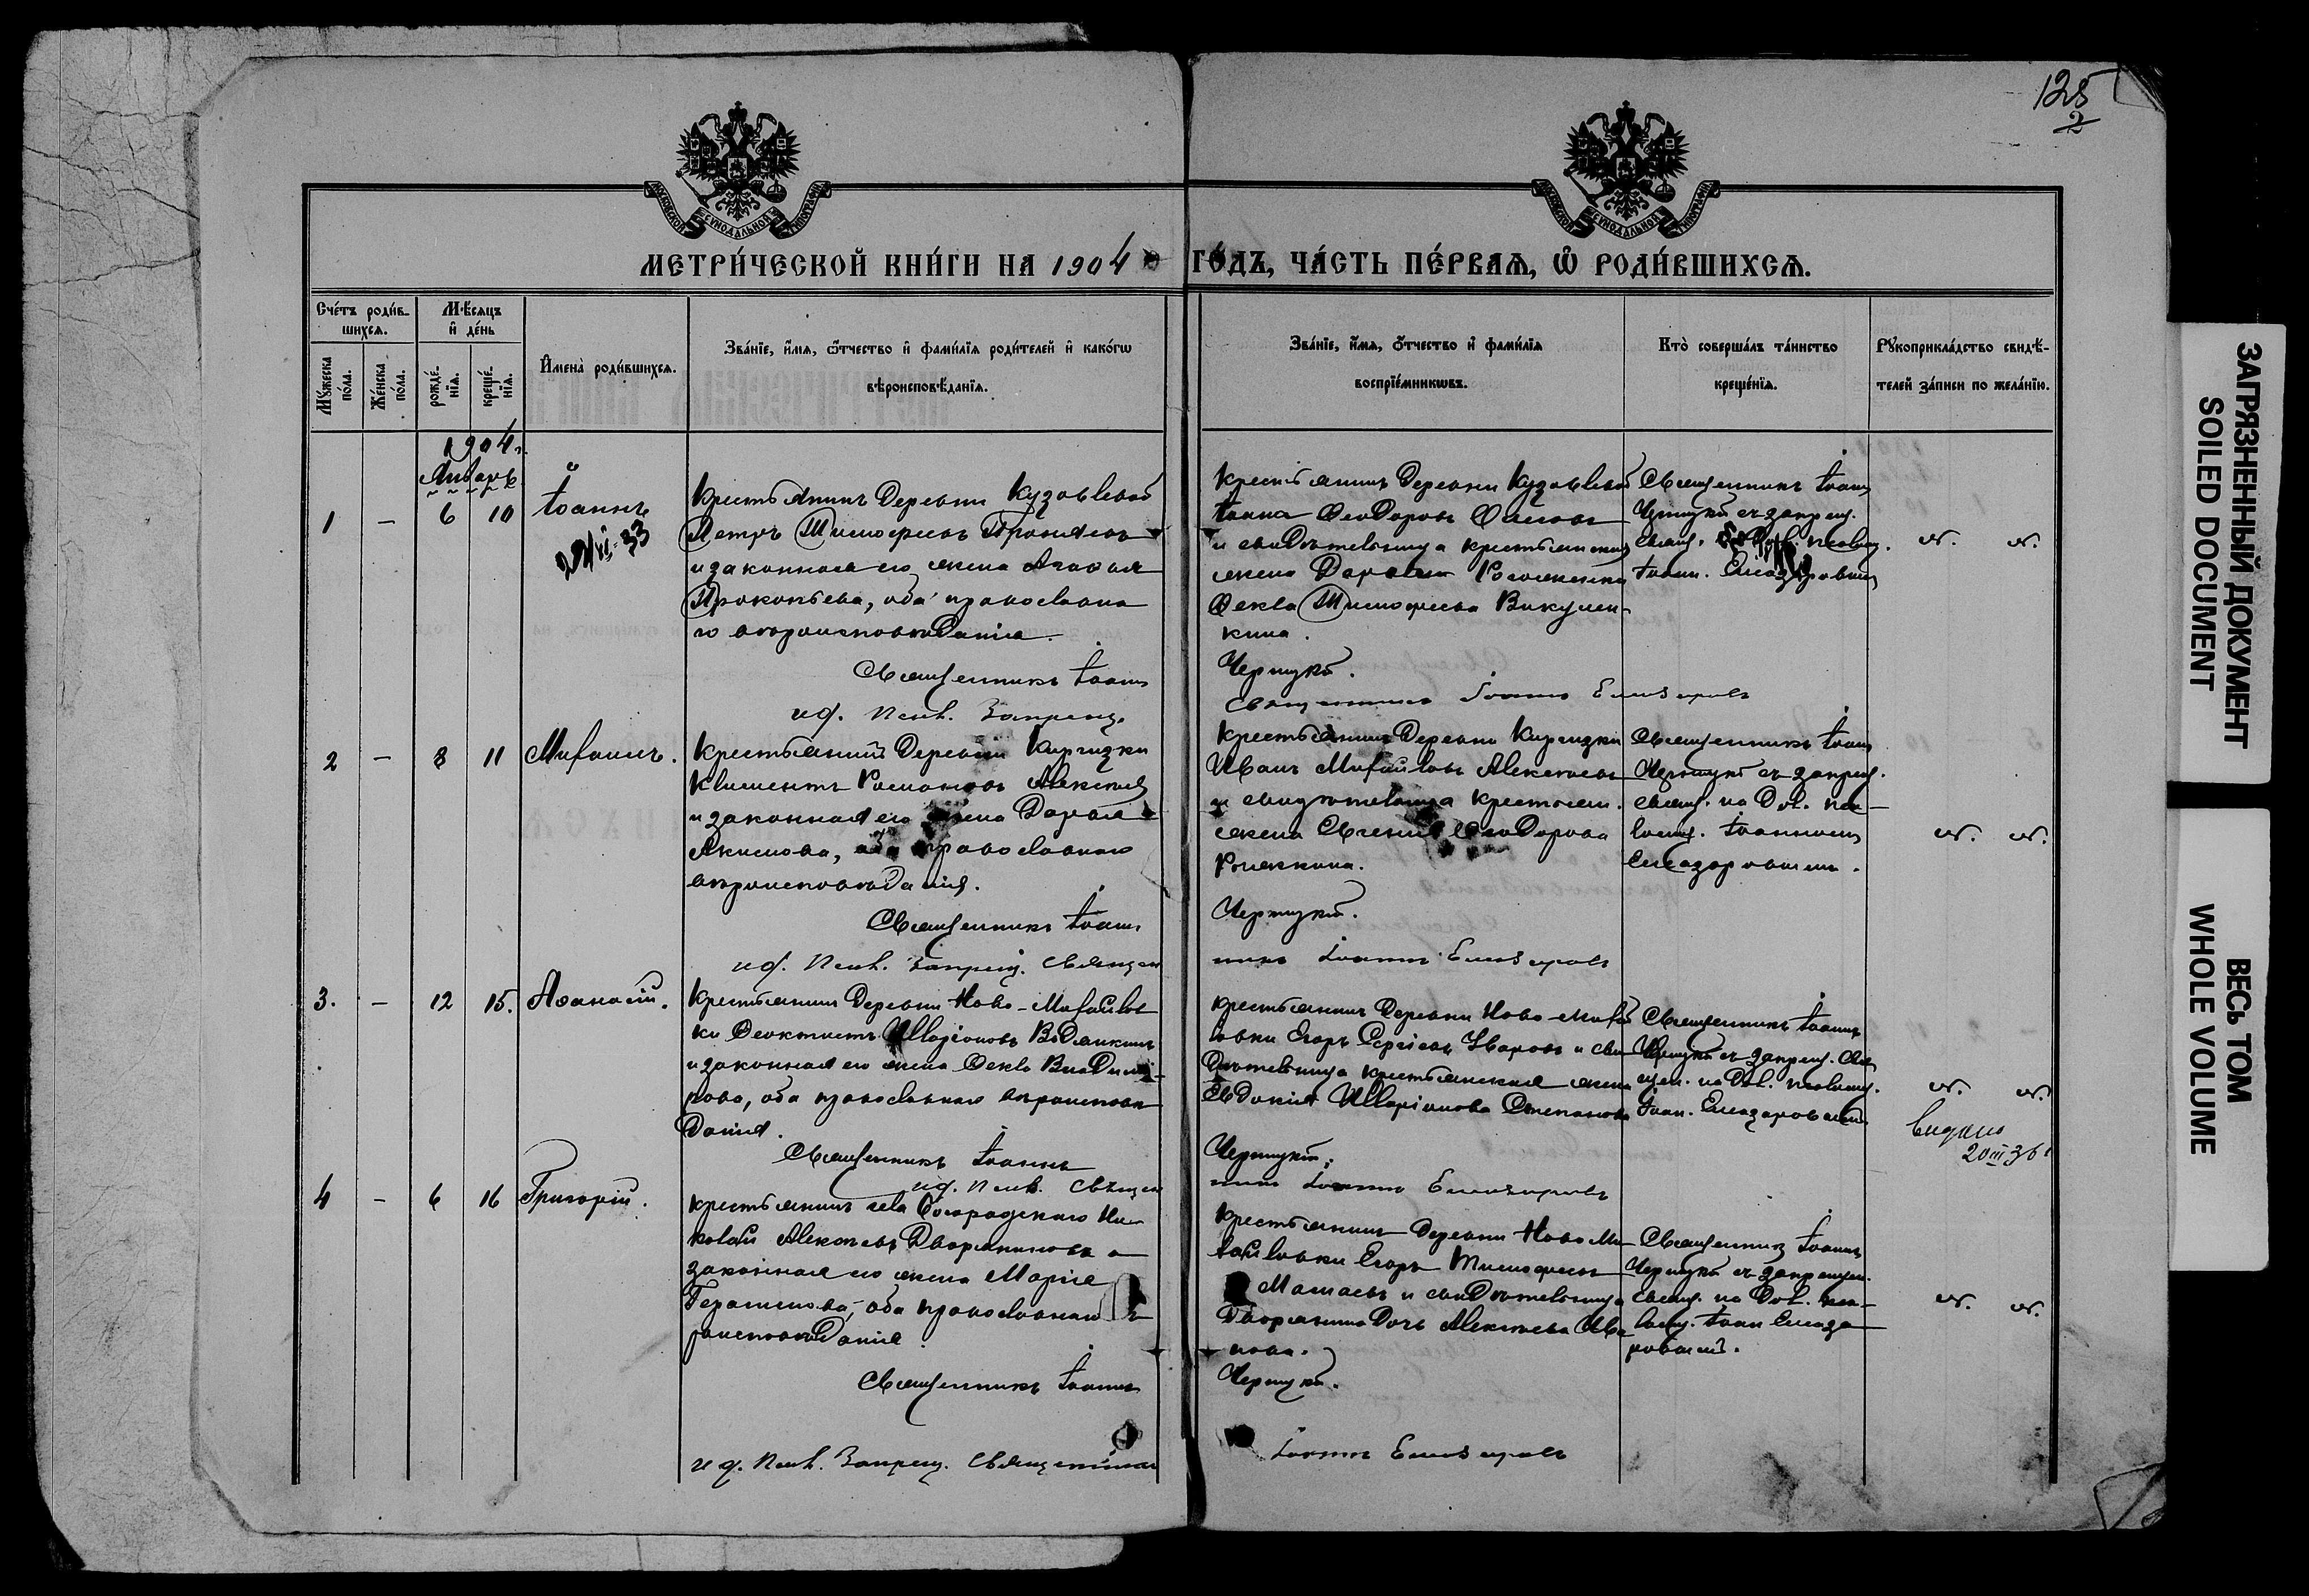 125
2
МОСКОВСКОЙ СѴНОДАЛЬНОЙ ТИПОГРАФІИ
МОСКОВСКОЙ СѴНОДАЛЬНОЙ ТИПОГРАФІИ
МЕТРИ́ЧЕСКОЙ КНИ́ГИ НА 1904 ГО́ДЪ, ЧА́СТЬ ПЕ́РВАѦ, Ѡ҆ РОДИ́ВШИХСѦ.
Сче́тъ роди́в-
шихсѧ.
Мꙋ́жеска по́ла.
Же́нска по́ла.
Мѣ́сѧцъ
и҆ де́нь
рожде́-
нїѧ.
креще́-
нїѧ.
И҆мена̀ роди́вшихсѧ.
Зва́нїе, и҆́мѧ, ѻ҆́тчество и҆ фами́лїѧ роди́телей и҆ како́гѡ
вѣроисповѣ́данїѧ.
Зва́нїе, и҆́мѧ, ѻ҆́тчество и҆ фами́лїѧ
воспрїе́мникѡвъ.
Кто̀ соверша́лъ та́инство
креще́нїѧ.
Рꙋкоприкла́дство свидѣ́-
телей за́писи по жела́нїю.
1904 г.
Январь
1 — 6 10 Іоаннъ
Крестьянинъ деревни Кузовлевой
Петръ Тимофеевъ
и законная его жена Агафья
Прокопьева, оба православна
го вѣроисповѣданія.
Священникъ Іоаннъ
ид. Псал. Запрещ.
Крестьянинъ деревни Кузовлевой
Іоаннъ Феодоровъ
и свидѣтельница крестьянская
жена Дарья
Фекла Тимофеева Викулен-
кина.
Черницкій.
Священникъ Іоаннъ Елеазаровъ
Священникъ Іоаннъ
Черницкій съ запрещ.
свящ.
Іоан. Елеазаровымъ
2 — 8 11 Михаилъ.
Крестьянинъ деревни Киргизки
Климентъ Романовъ Алексѣевъ
и законная его жена Дарья
Акимова, оба православнаго
вѣроисповѣданія.
Священникъ Іоаннъ
ид. Псал. Запрещ. Священ
Крестьянинъ деревни Киргизки
Иванъ Михайловъ Алексѣевъ
и свидѣтельница крестьян.
жена Евгенія Феодорова
Черницкій.
никъ Іоаннъ Елеазаровъ
Священникъ Іоаннъ
Черницкій съ запрещ.
свящ. на Дол. пса-
ломщ. Іоанномъ
Елеазаровымъ.
3. — 12 15. Афанасій.
Крестьянинъ деревни Ново-Михайлов
ки Феоктистъ Илларіоновъ Водянкинъ
и законная его жена Фекла Влади-
рова, оба православнаго вѣроисповѣ
данія.
Священникъ Іоаннъ
ид. Псал. Священ
Крестьянинъ деревни Ново-Михай
ловки Егоръ Сергіевъ Уваровъ и сви
дѣтельница крестьянская жена
Евдокія Илларіонова Степанова
Черницкій.
никъ Іоаннъ Елеазаровъ
Священникъ Іоаннъ
Черницкій съ запрещ. Свя
щен. на Дол. псаломщ.
Іоан. Елеазаровымъ
Выдано
20 III 36
4 — 6 16 Григорій.
Крестьянинъ села Богородскаго Ни-
колай Алексѣевъ Дворяниновъ и
законная его жена Марія
Герасимова, оба православнаго вѣ
роисповѣданія.
Священникъ Іоаннъ
ид. Псал. Запрещ. Священникъ
Крестьянинъ деревни Ново Ми
хайловки Егоръ Тимофеевъ
Мамаевъ и свидѣтельница
дочь Алексѣева
нова.
Черницкій.
Іоаннъ Елеазаровъ
Священникъ Іоаннъ
Черницкій съ запрещен.
свящ. на Дол. пса-
ломщ. Іоан Елеаза
ровымъ.
ЗАГРЯЗНЕННЫЙ ДОКУМЕНТ
SOILED DOCUMENT
ВЕСЬ ТОМ
WHOLE VOLUME